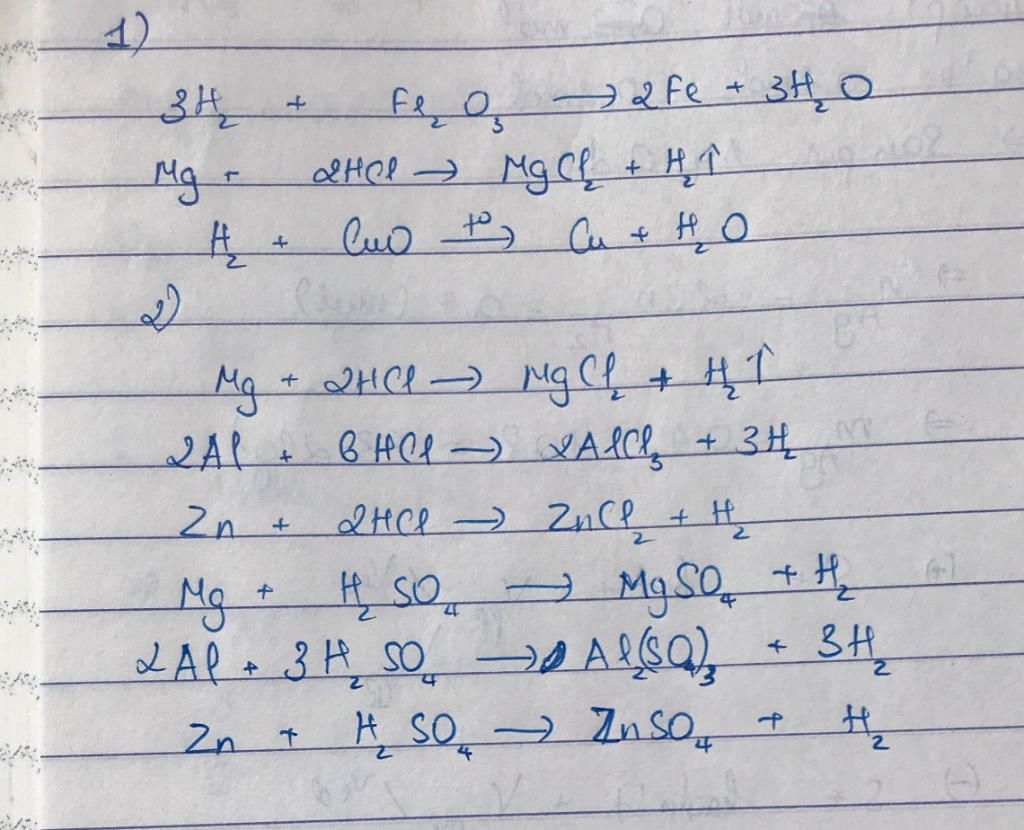 1)
3H₂ + Fe₂O₃ → 2Fe + 3H₂O
Mg + 2HCl → MgCl₂ + H₂↑
H₂ + CuO —t⁰→ Cu + H₂O
2)
Mg + 2HCl → MgCl₂ + H₂↑
2Al + 6HCl → 2AlCl₃ + 3H₂
Zn + 2HCl → ZnCl₂ + H₂
Mg + H₂SO₄ → MgSO₄ + H₂
2Al + 3H₂SO₄ → Al₂(SO₄)₃ + 3H₂
Zn + H₂SO₄ → ZnSO₄ + H₂